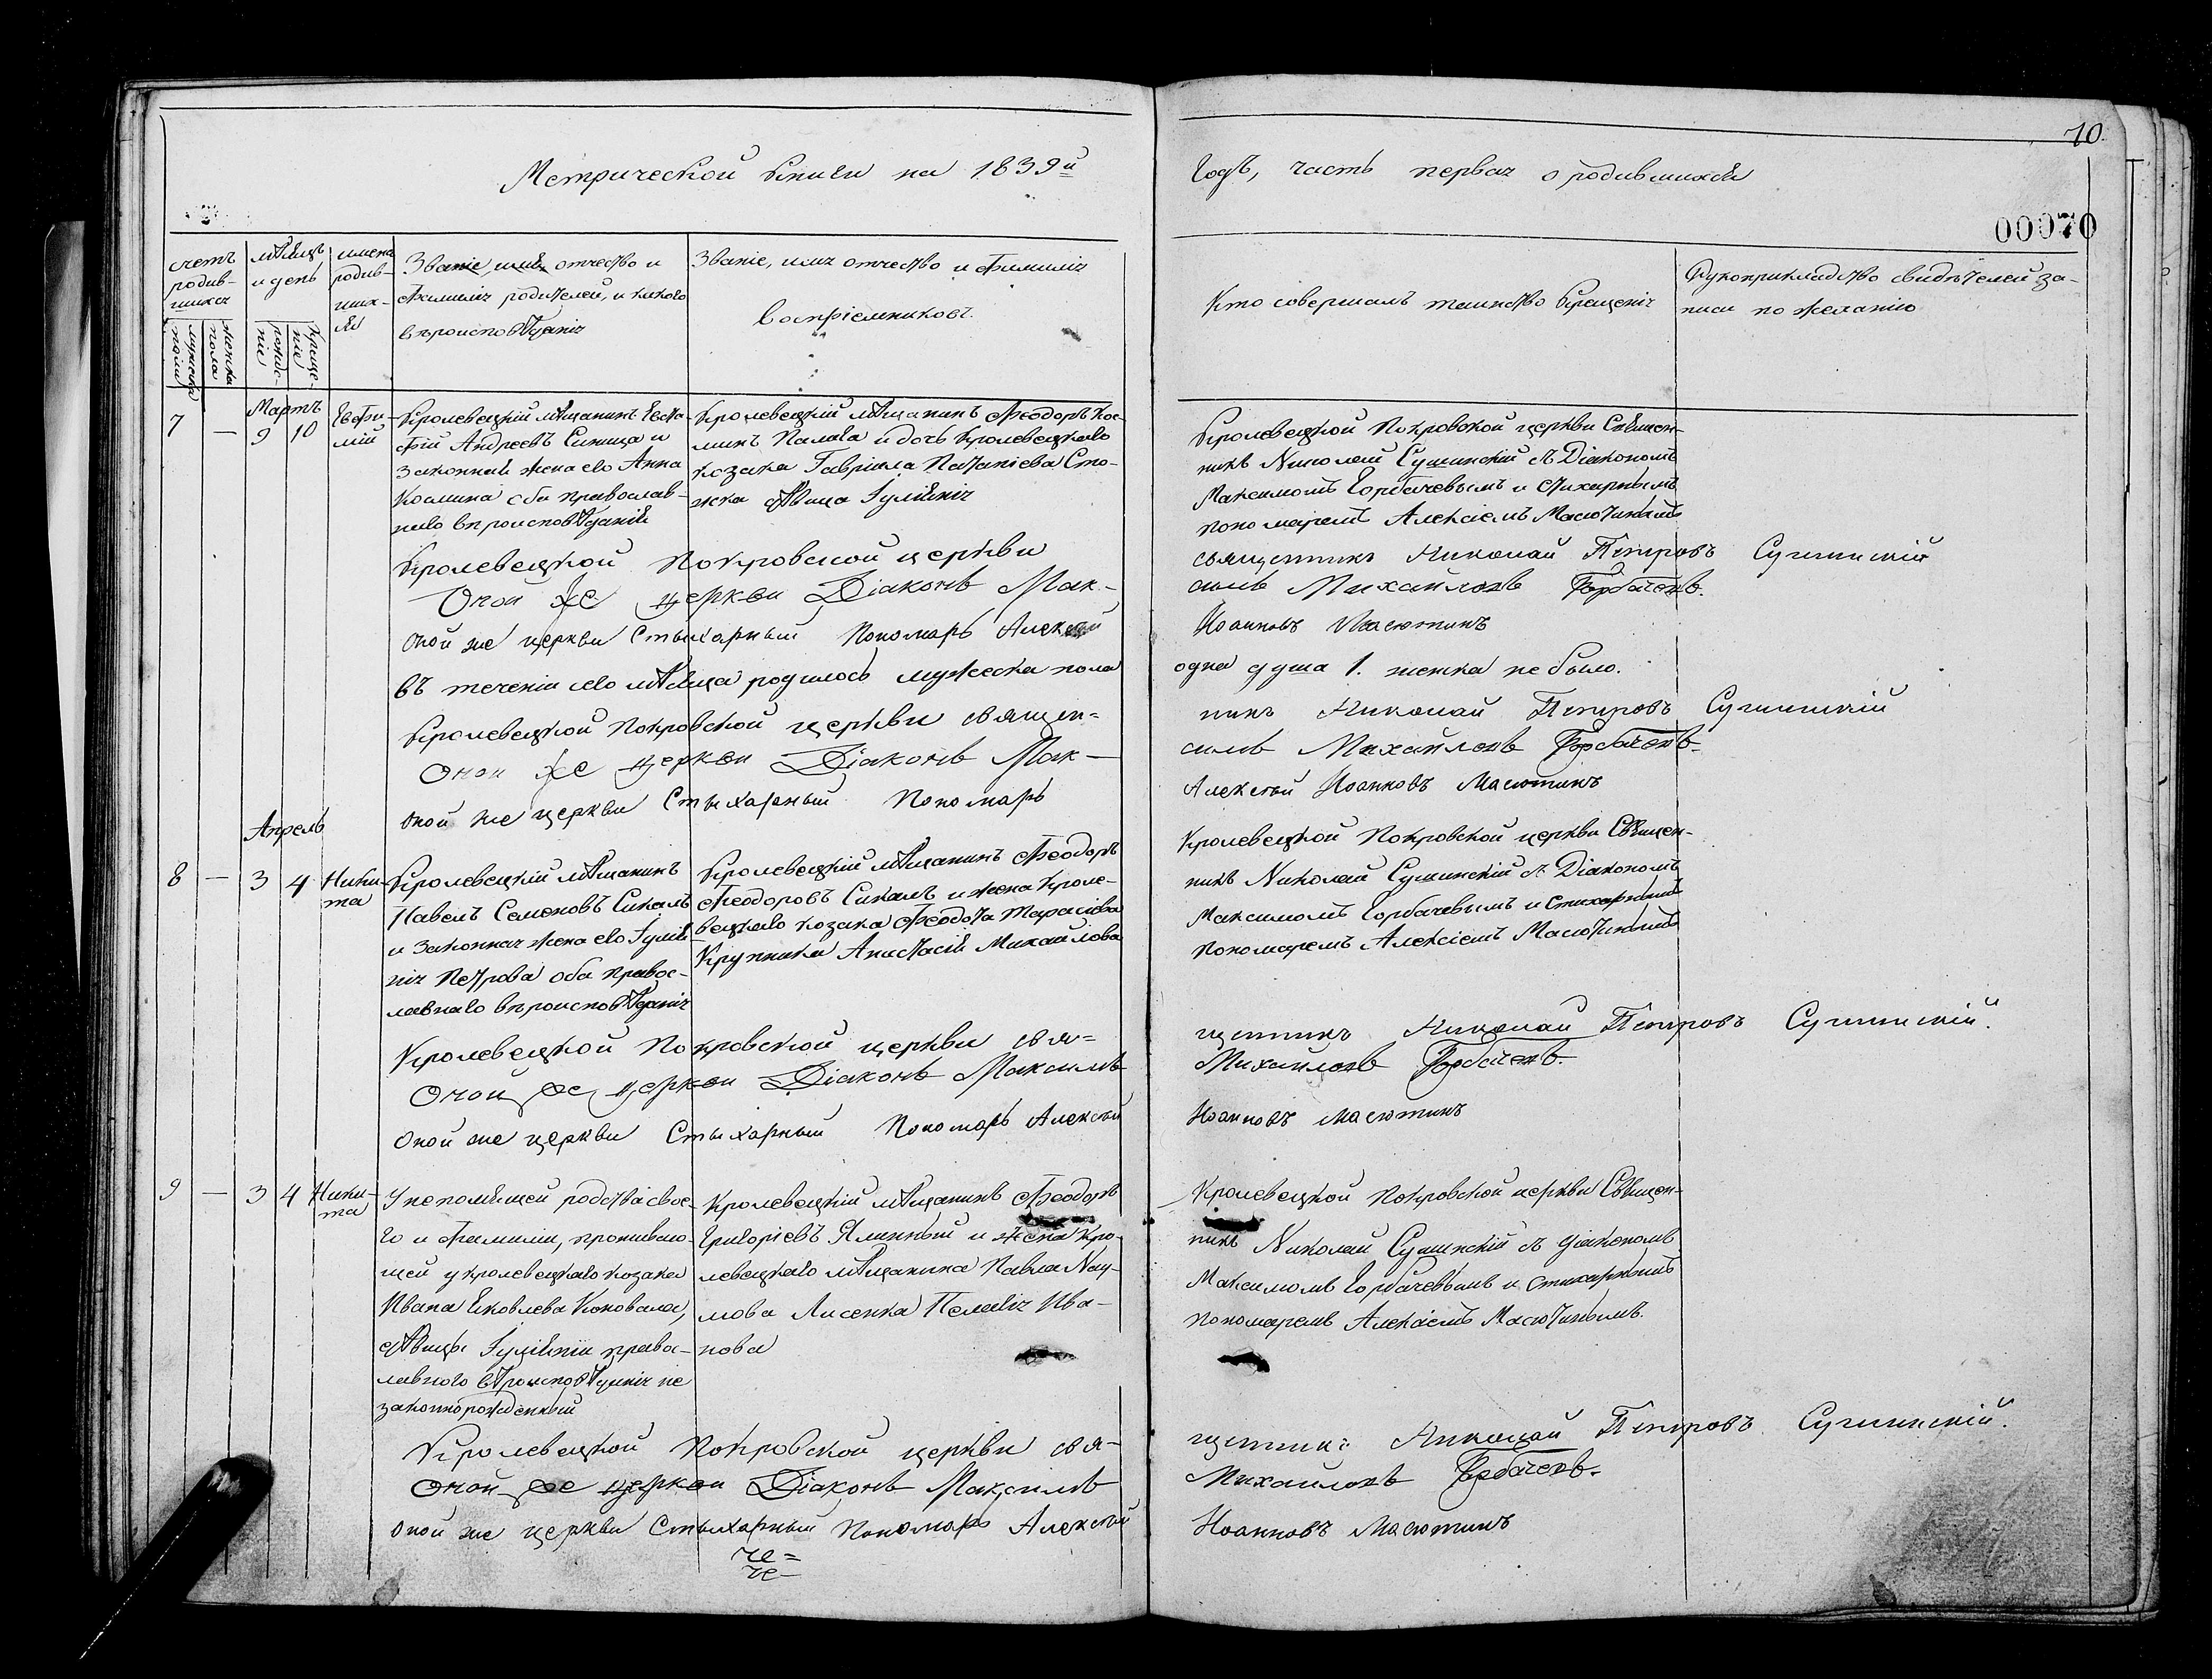 10.
Метрической книги на 1839й
Годъ, часть первая о родившихся
00070
счетъ родив-шихся
мѣсяцъ и день
имена родив-ших-ся
Званіе, имя, отчество и
фамилія родителей, и какого
вѣроисповѣданія
Званіе, имя отчество и фамилія
воспріемниковъ.
Кто совершалъ таинство крещенія
Рукоприкладство свидѣтелей за-
писи по желанію
мужеска пола
женска пола
рожде-ніе
креще-ніе
Мартъ
7 — 9 10 Евфи-мій
Кролевецкій мѣщанинъ Евста-
фій Андреевъ Синица и
законная жена его Анна
Космина оба православ-
наго вѣроисповѣданія
Кролевецкій мѣщанинъ Феодоръ Кос-
минъ Палага и дочь Кролевецкаго
козака Гавріила Натаніева Сто-
жка дѣвица Іуліянія
Кролевецкой Покровской церкви Священ-
никъ Николай Сушинскій съ Діакономъ
Максимомъ Горбачевымъ и стихарнымъ
пономаремъ Алексіемъ Масютинымъ
Кролевецкой Покровской церкви
священникъ Николай Петровъ Сушинскій
Оной же церкви Діаконъ Мак-
симъ Михайловъ Горбачевъ.
Оной же церкви Стыхарный Пономарь Алексѣй
Иоанновъ Масютинъ
Въ теченіи сего мѣсяца родилось мужеска пола
одна душа 1. женска не было.
Кролевецкой Покровской церкви священ=
никъ Николай Петровъ Сушинскій
Оной же церкви Діаконъ Мак-
симъ Михайловъ Горбачевъ.
Оной же церкви Стыхарный Пономарь
Алексѣй Иоанновъ Масютинъ
Апрель
8 — 3 4 Ники-та
Кролевецкій мѣщанинъ
Павелъ Семеновъ Сикалъ
и законная жена его Іулія
нія Петрова оба правос-
лавнаго вѣроисповѣданія
Кролевецкій мѣщанинъ Феодоръ
Феодоровъ Сикалъ и жена Кроле-
вецкаго козака Феодота Тарасіева
Крупника Анастасія Михайлова
Кролевецкой Покровской церкви Священ-
никъ Николай Сушинскій съ Діакономъ
Максимомъ Горбачевымъ и стихарнымъ
Пономаремъ Алексіемъ Масютинымъ
Кролевецкой Покровской церкви свя=
щенникъ Николай Петровъ Сушинскій.
Оной же церкви Діаконъ Максимъ
Михайловъ Горбачевъ.
Оной же церкви Стыхарный Пономарь Алексѣй
Иоанновъ Масютинъ
9 — 3 4 Ники-та
У непомнящей родства свое-
го и фамиліи, проживаю-
щей у кролевецкаго козака
Ивана Яковлева Коновала,
дѣвицы Іуліяніи правос-
лавного вѣроисповѣданія не
законнорожденный
Кролевецкій мѣщанинъ Феодоръ
Григоріевъ Ялинный и жена Кро-
левецкаго мѣщанина Павла Нау-
мова Лисенка Пелагія Ива-
нова
Кролевецкой Покровской церкви Священ-
никъ Николай Сушинскій съ діакономъ
Максимомъ Горбачевымъ и стихарнымъ
пономаремъ Алексіемъ Масютинымъ.
Кролевецкой Покровской церкви свя-
щенникъ Николай Петровъ Сушинскій.
Оной же церкви Діаконъ Максимъ
Михайловъ Горбачевъ.
Оной же церкви Стыхарный Пономарь Алексѣй
Иоанновъ Масютинъ
че=
че-